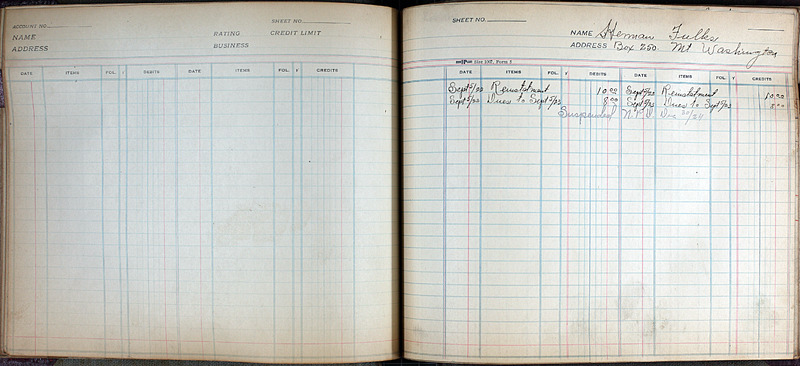 ACCOUNT NO.
SHEET NO.
NAME
RATING
CREDIT LIMIT
ADDRESS
BUSINESS
DATE ITEMS FOL. √ DEBITS DATE ITEMS FOL. √ CREDITS
SHEET NO.
NAME Heman Fulks
ADDRESS Box 250 Mt Washington
Size 237, Form 2
DATE ITEMS FOL. √ DEBITS DATE ITEMS FOL. √ CREDITS
Sept 5/22 Reinstatment 10.00 Sept 5/22 Reinstatment 10.00
Sept 5/22 Dues to Sept 5/22 8.00 Sept 5/22 Dues to Sept 5/22 8.00
Suspended N.P.D. Dec /24